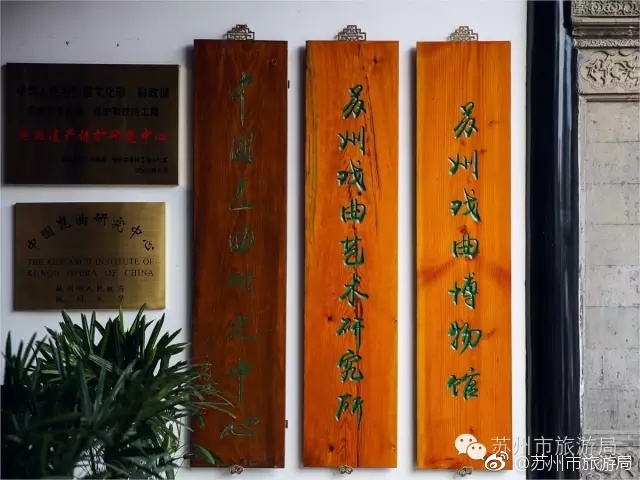 中华人民共和国文化部 财政部
保护和扶持工程
昆曲遗产保护研究中心
中國昆曲研究中心
THE RESEARCH INSTITUTE OF
KUNQU OPERA OF CHINA
苏州市人民政府
苏州大学
中國昆曲研究中心
苏州戏曲艺术研究所
苏州戏曲博物馆
苏州市旅游局
@苏州市旅游局